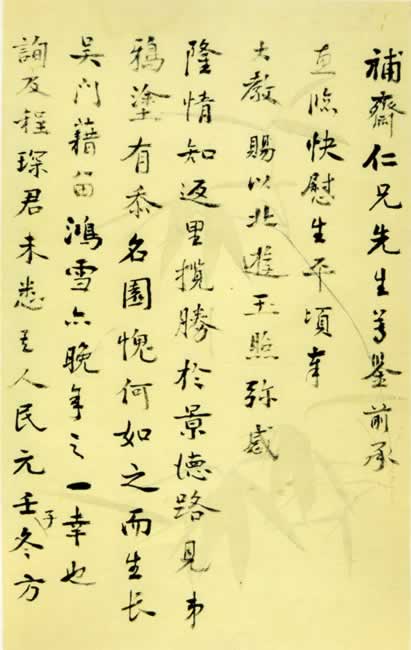 補齋仁兄先生菁鑒前承
直臨快慰生平頃奉
大教賜以北遊玉照弥感
隆情知返里攬勝於景德路見弟
鴉塗有忝名園愧何如之而生長
吳门藉留鴻雪亦晚年之一幸也
詢及程琛君未悉其人民元壬子冬方